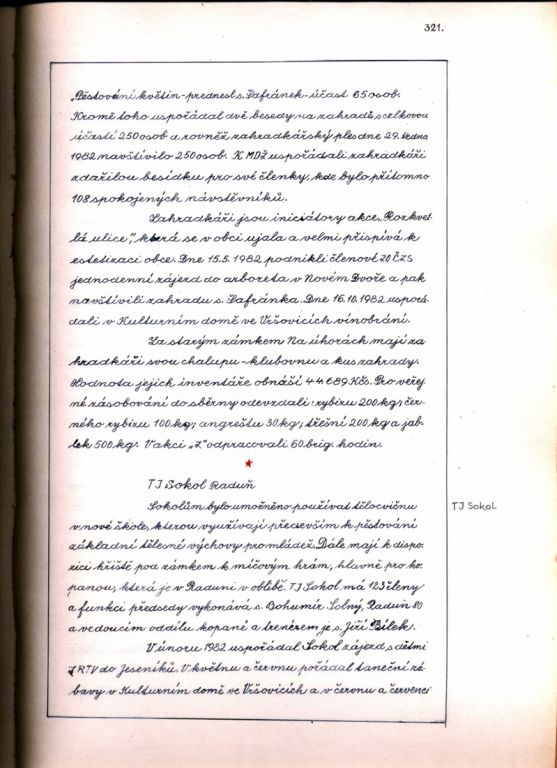 321.
„Pěstování květin - prednesl s. Šafránek - účast 65 osob.
Kromě toho uspořádal dvě besedy na zahradě s celkovou
účastí 250 osob a rovněž zahrádkářský ples dne 29. ledna
1982 navštívilo 250 osob. K MDŽ uspořádali zahrádkáři
zdařilou besídku pro své členky, kde bylo přítomno
108 spokojených návstěvníků.
Zahrádkáři jsou iniciátory akce „Rozkvet
lá ulice", která se v obci ujala a velmi přispívá k
estetizaci obce. Dne 15.5.1982 podnikli členové ZO ČZS
jednodenní zájezd do arboreta v Novém Dvoře a pak
navštívili zahradu s. Šafránka. Dne 16.10.1982 uspořá
dali v Kulturním domě ve Vršovicích vinobraní.
Za starým zámkem Na úhorách mají za
hrádkáři svou chalupu - klubovnu a kus zahrady.
Hodnota jejich inventáře obnáší 44 689 Kčs. Pro veřej
né zásobování do sběrny odevzdali: rybízu 200 kg; čer
ného rybízu 100 kg; angreštu 30 kg; třešní 200 kg a jab-
lek 500 kg. V akci „Z" odpracovali 60 brig. hodin.
TJ Sokol Raduň
Sokolům bylo umožněno používat tělocvičnu
v nové škole, kterou využívají především k pěstování
základní tělesné výchovy pro mládež. Dále mají k dispo
zici hřiště pod zámkem k míčovým hrám, hlavně pro ko
panou, která je v Raduni v oblibě. TJ Sokol má 123 členy
a funkci předsedy vykonává s. Bohumír Solný, Raduň 80
a vedoucím oddílu kopané a trenérem je s. Jiří Bílek.
V únoru 1982 uspořádal Sokol zájezd s dětmi
ZRTV do Jeseníků. V květnu a červnu pořádal taneční zá
bavy v Kulturním domě ve Vršovicích a v červnu a červenci
TJ Sokol